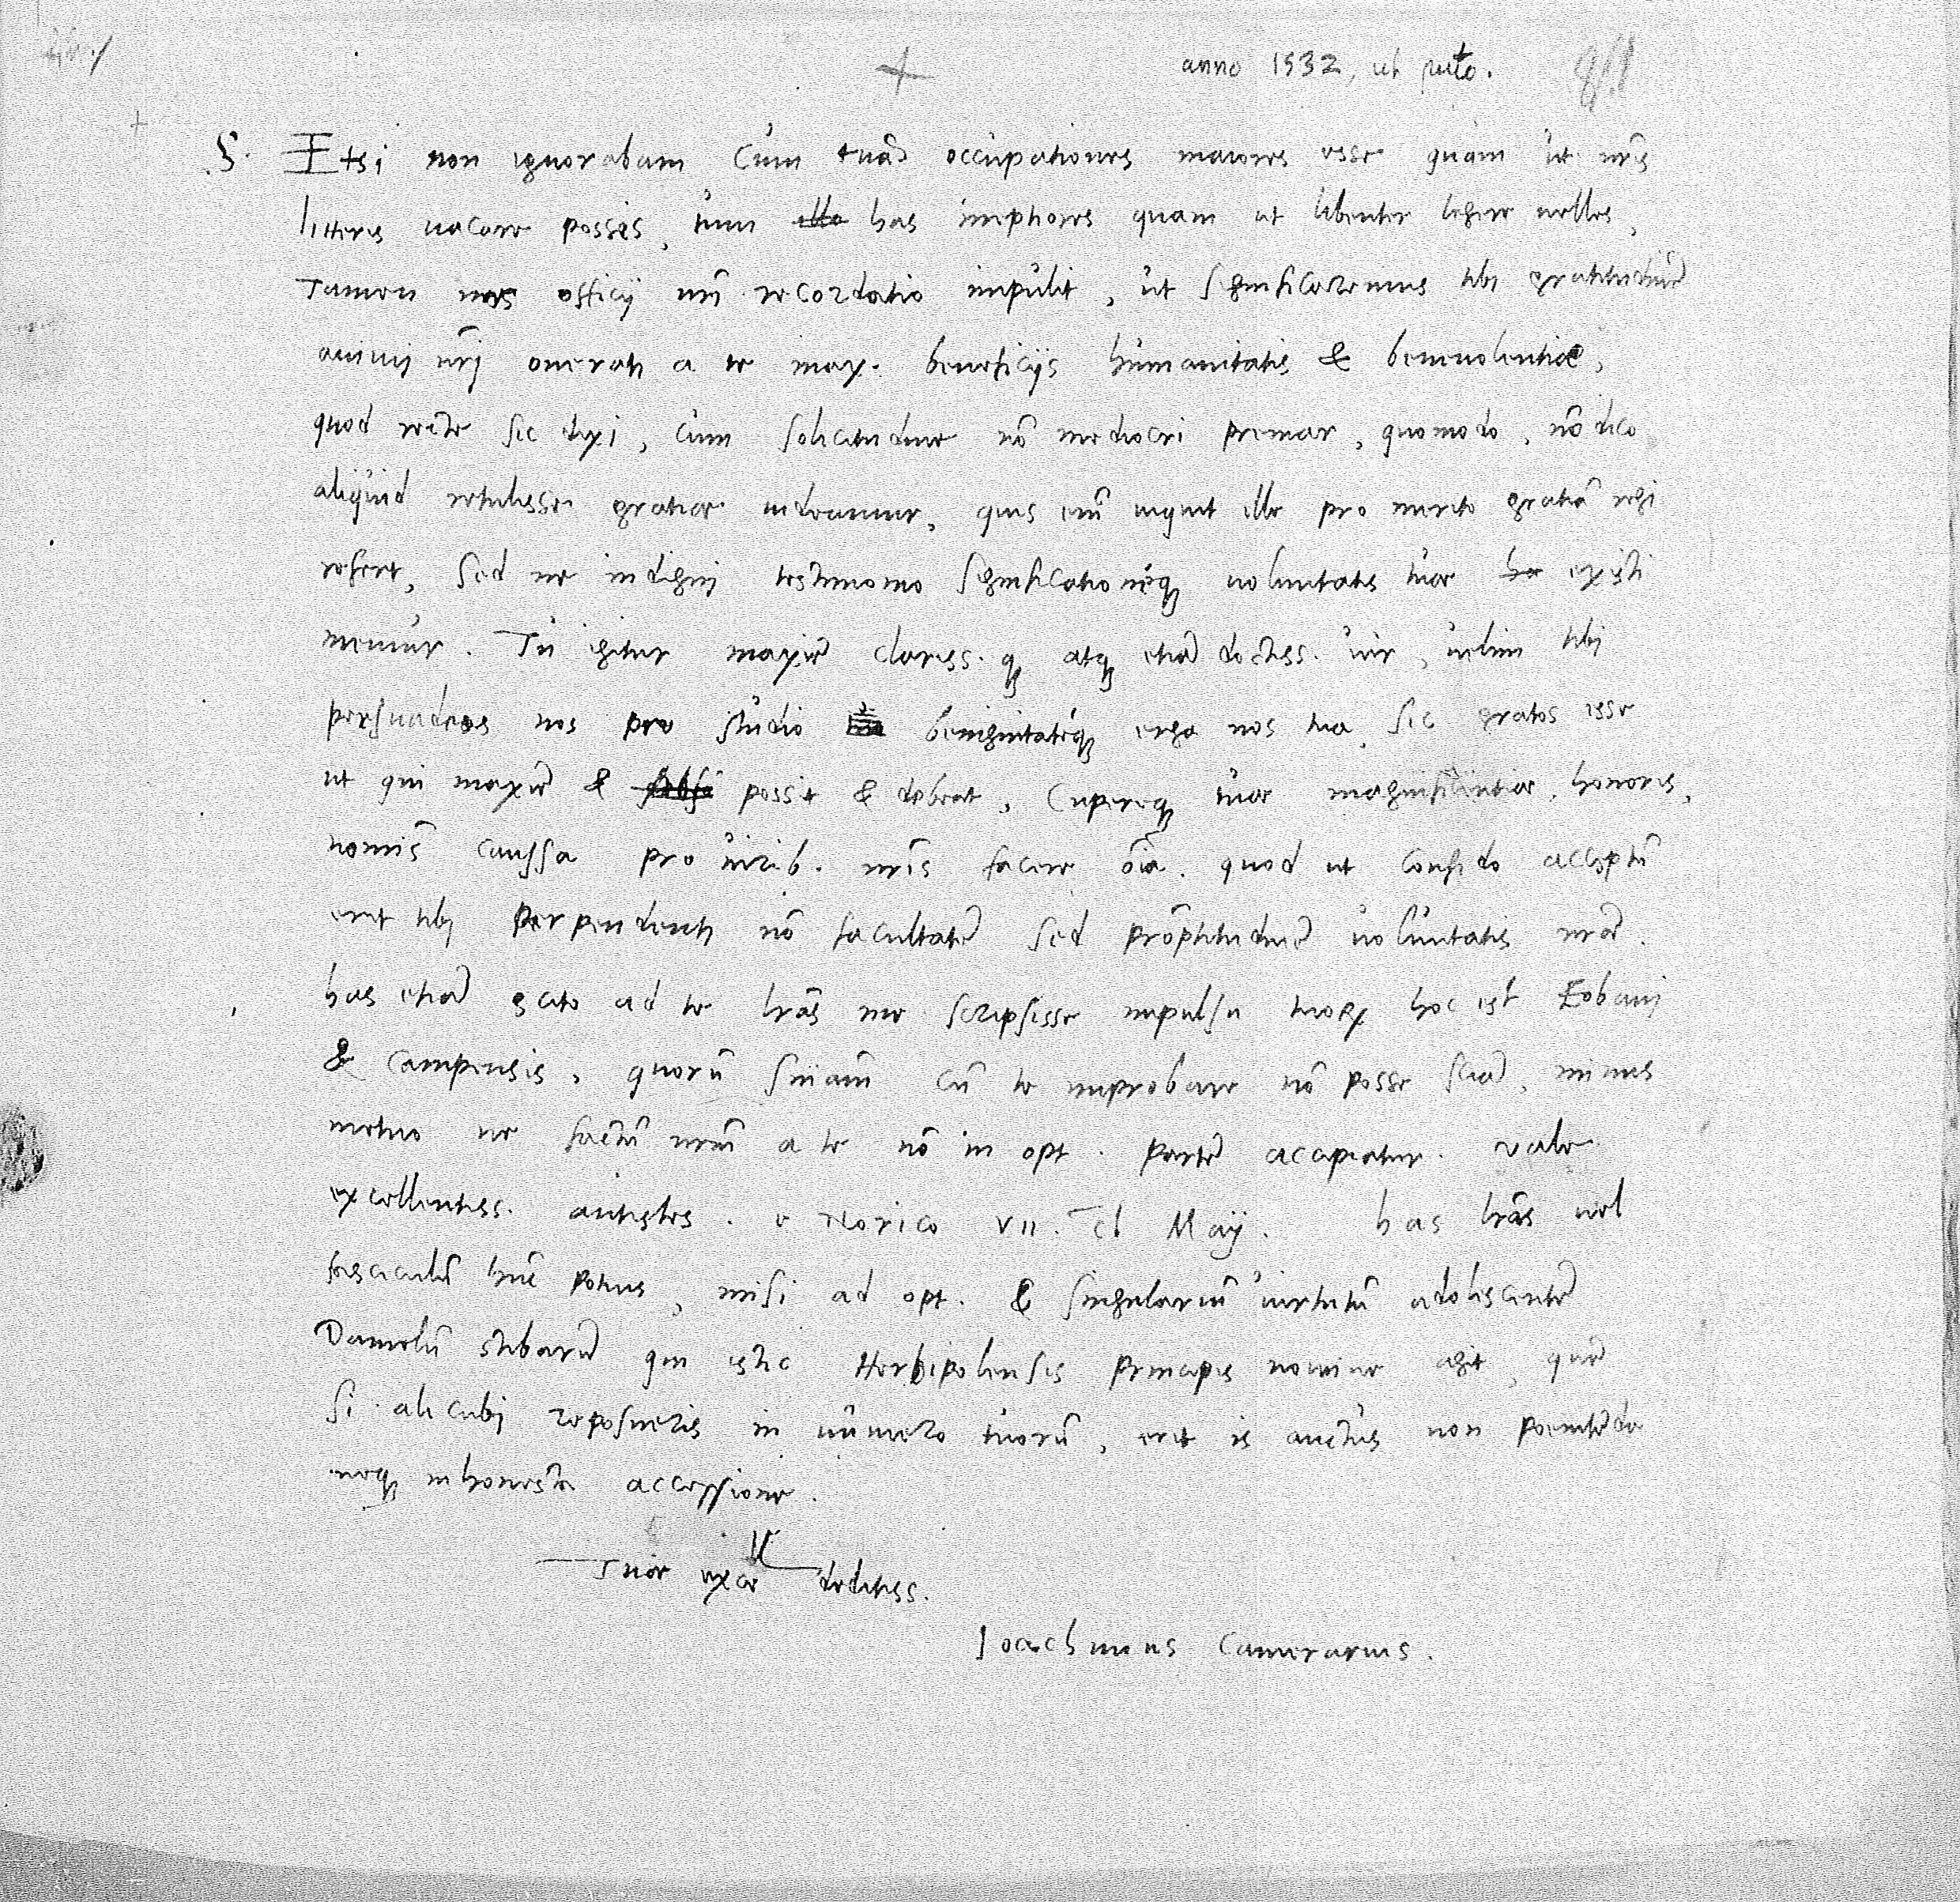 anno 1532, ut puto.
S. Etsi non ignorabam Cum tuas occupationes maiores esse quam ut nr̃is
litteris uacare possis, tum illo has ineptiores quam ut libenter legere uelles,
Tamen nos officij nr̃i recordatio impulit, ut significaremus tibi gratitudinẽ
animj nr̃j onerati a te max. beneficijs humanitatis & beneuolentiae,
quod recte sic dixi, cum solicitudine nõ mediocri premar, quomodo, nõ dico
aliquid retulisse gratiae uideamur, quis enĩ inquit ille pro merito gratiã regi
refert, Sed ne indignj testimonio significationéq; uoluntatis tuae existi
memur. Tu igitur maximẽ clariss. q; atq; etiã doctiss. uir, uelim tibj
persuadeas nos pro studio benignitatéq; erga nos tua, sic gratos esse
ut qui maximẽ & possit & debeat, Cupereq; tuae magnificentiae, honoris,
nominis̃ caussa pro uirib. nr̃is facere oĩa. quod ut confido acceptũ
erit tibj perpendentj nõ facultatẽ sed prõptitudinẽ uoluntatis nrãe.
has etiã scito ad te lr̃as me scripsisse impulsu tuoꝝ hoc est Eobani
& Campensis, quorũ sñiam cũ te improbare nõ posse sciã, minus
metuo ne factũ nrm̃ a te nõ in opt. partẽ accipiatur. Vale
excellentiss. antistes. e Norico VII. Cl Maij. has lr̃as uel
fasciculũ hũc potius, misi ad opt. & singulariũ uirtutũ adolescentẽ
Danielũ Stibarũ qui istic Herbipolensis principis nomine agit, quẽ
si alicubj reposueris in numero tuorũ, erit is auctus non poenitẽda
neq; inhonesta accessione.
Tuae excell deditiss.
Ioachimus Camerarius.